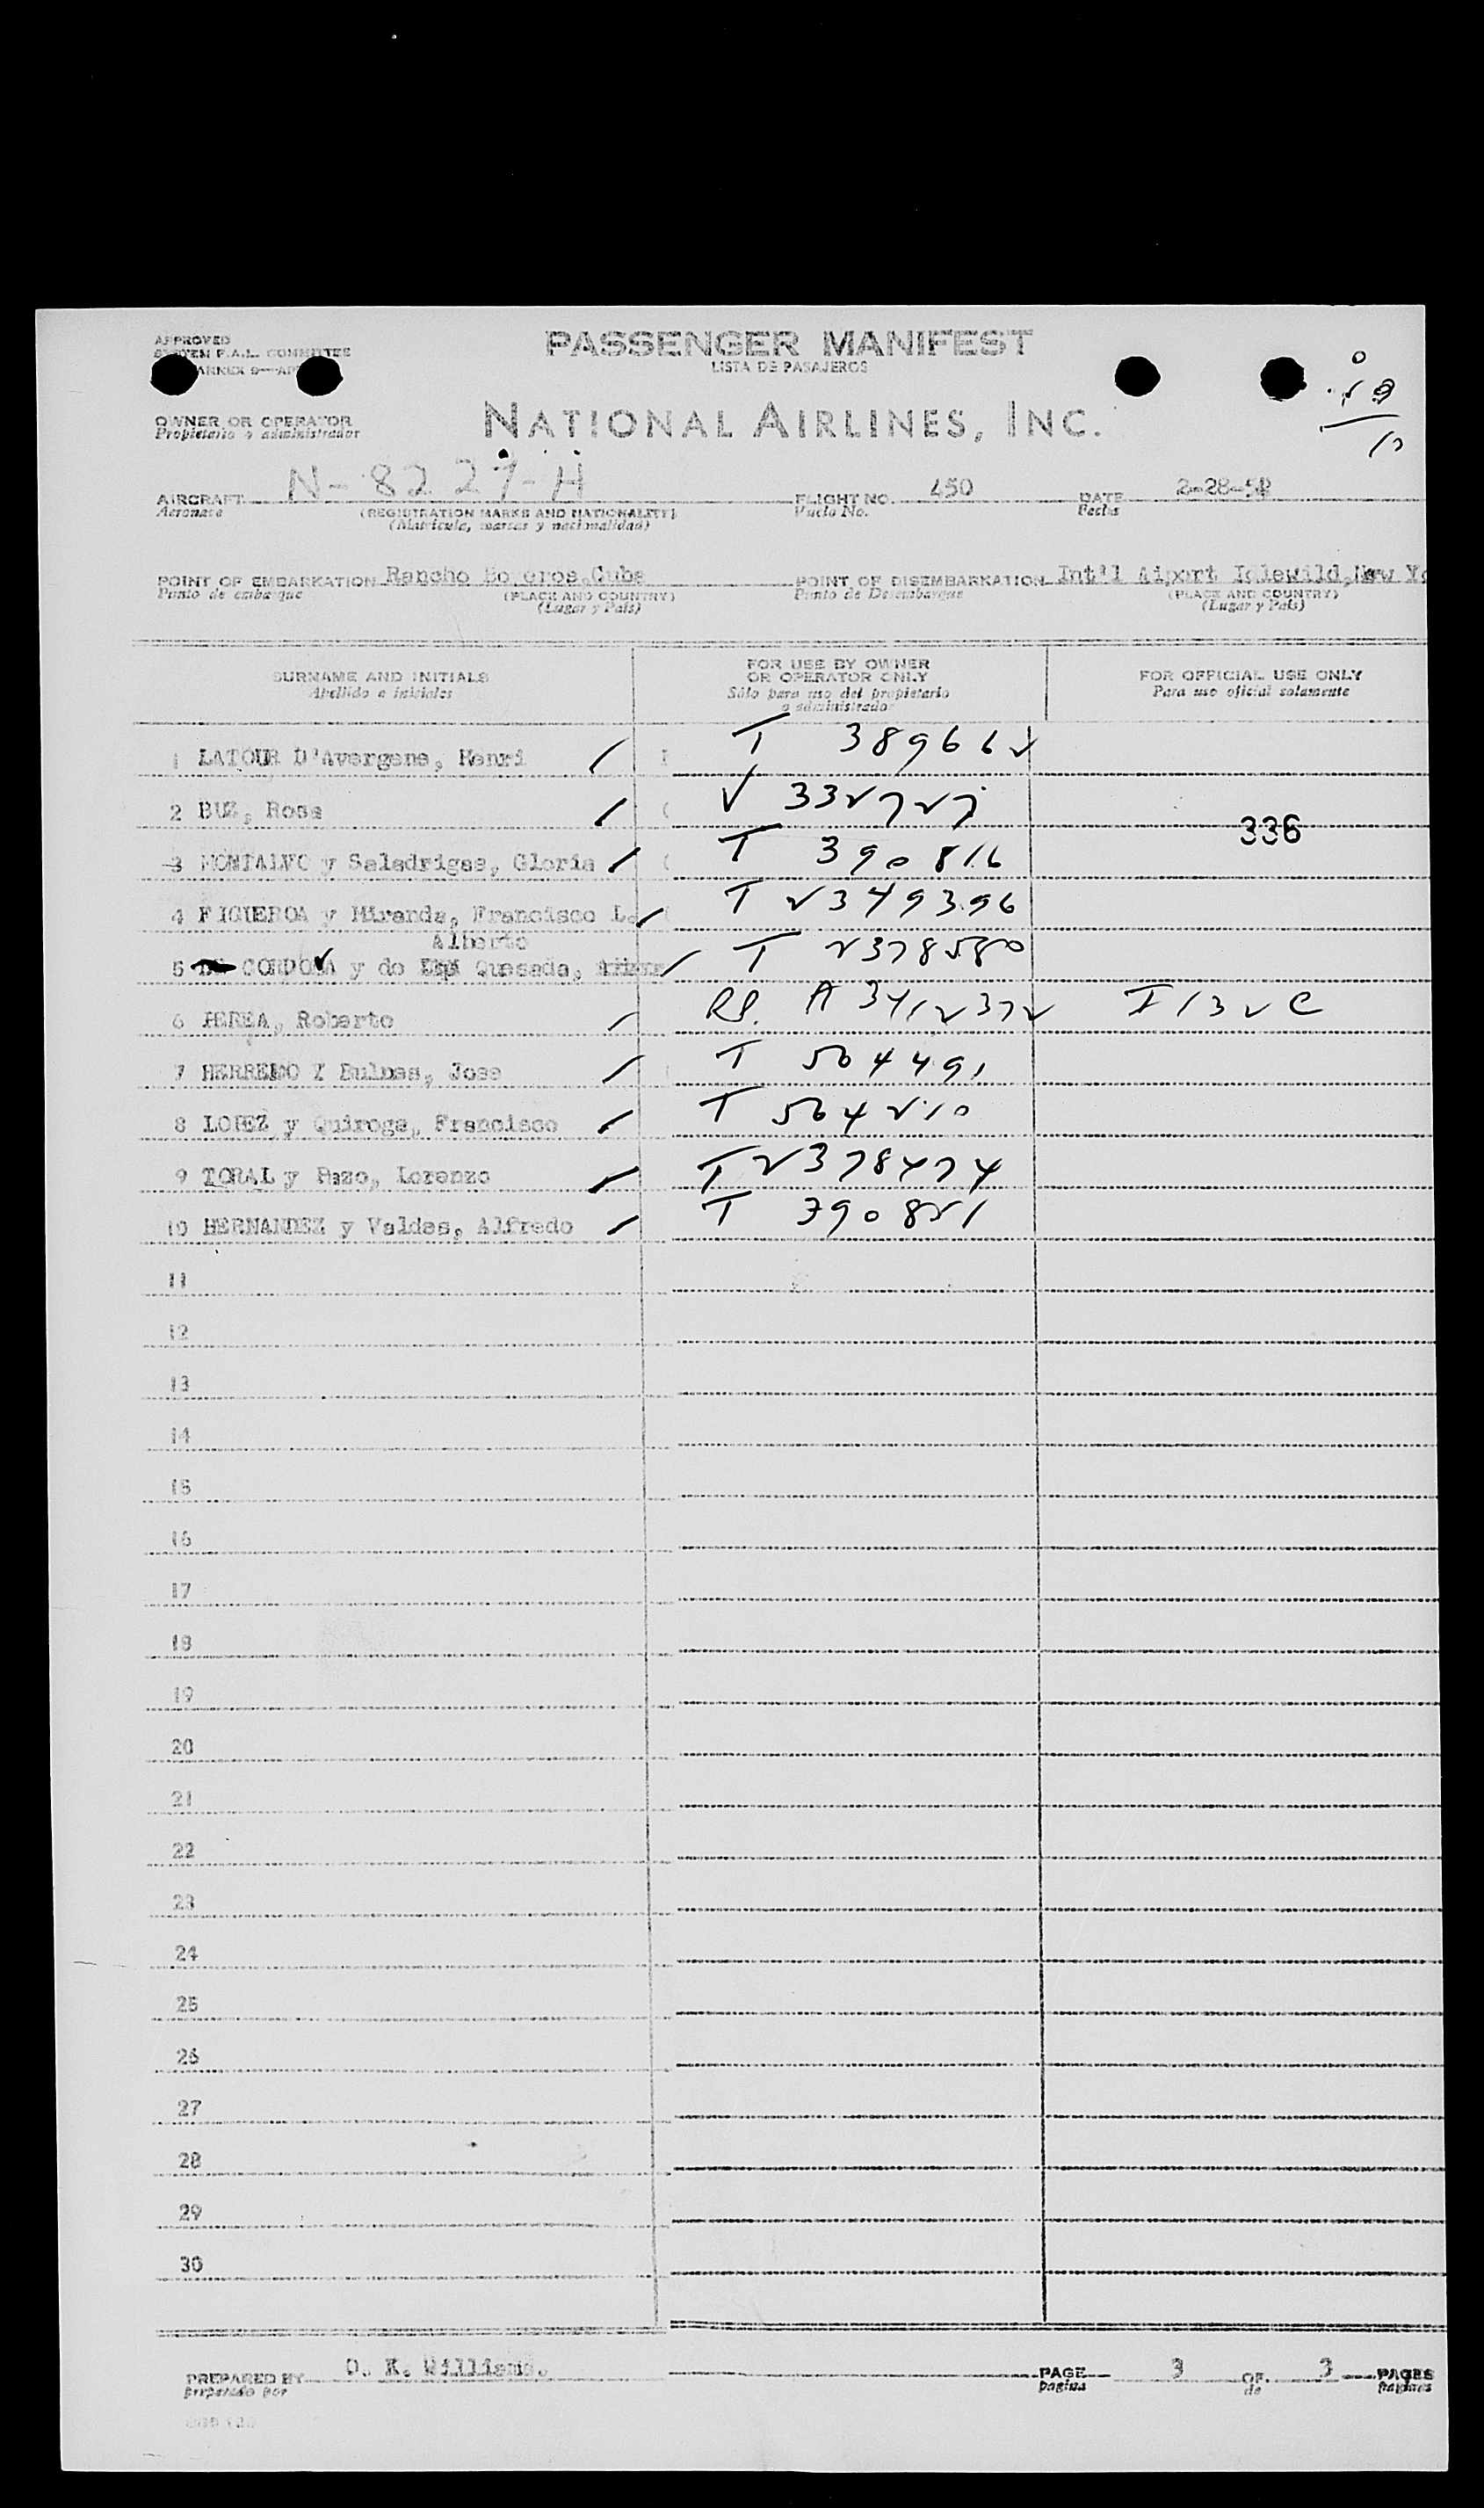 APPROVED
PASSENGER MANIFEST
LISTA DE PASAJEROS
OWNER OR OPERATOR
Propietario o administrador
NATIONAL AIRLINES, INC.
10
AIRCRAFT N-8227-H FLIGHT NO. 450 DATE 2-28-58
Aeronave (REGISTRATION MARKS AND NATIONALITY) Vuelo No. Fecha
(Matricula, marcas y nacionalidad)
POINT OF EMBARKATION Rancho Bo eros, Cuba POINT OF DISEMBARKATION Int'l Aiport Idlewild, New Yo
Punto de embarque (PLACE AND COUNTRY) Punto de Desembarque (PLACE AND COUNTRY)
(Lugar y País) (Lugar y País)
SURNAME AND INITIALS FOR USE BY OWNER OR OPERATOR ONLY FOR OFFICIAL USE ONLY
Apellido e iniciales Sólo para uso del propietario o administrador Para uso oficial solamente
1 LATOUR D'Avergene, Henri T 389662
2 BUZ, Rosa V 332727
336
3 MONTALVO y Saladrigas, Gloria T 390816
4 FIGUEROA y Miranda, Francisco L. T 2349396
Alberto
5 CORDOVA y do Quesada, T 2378580
6 PEREA, Roberto A 3412372 I 132 C
7 HERRERO Y Dulnas, Jose T 564491
8 LOPEZ y Quiroga, Francisco T 564210
9 TORAL y Pazo, Lorenzo T 2378474
10 HERNANDEZ y Valdes, Alfredo T 390821
11
12
13
14
15
16
17
18
19
20
21
22
23
24
25
26
27
28
29
30
PREPARED BY O. K. Williams. PAGE 3 OF 3 PAGES
preparado por pagina de paginas